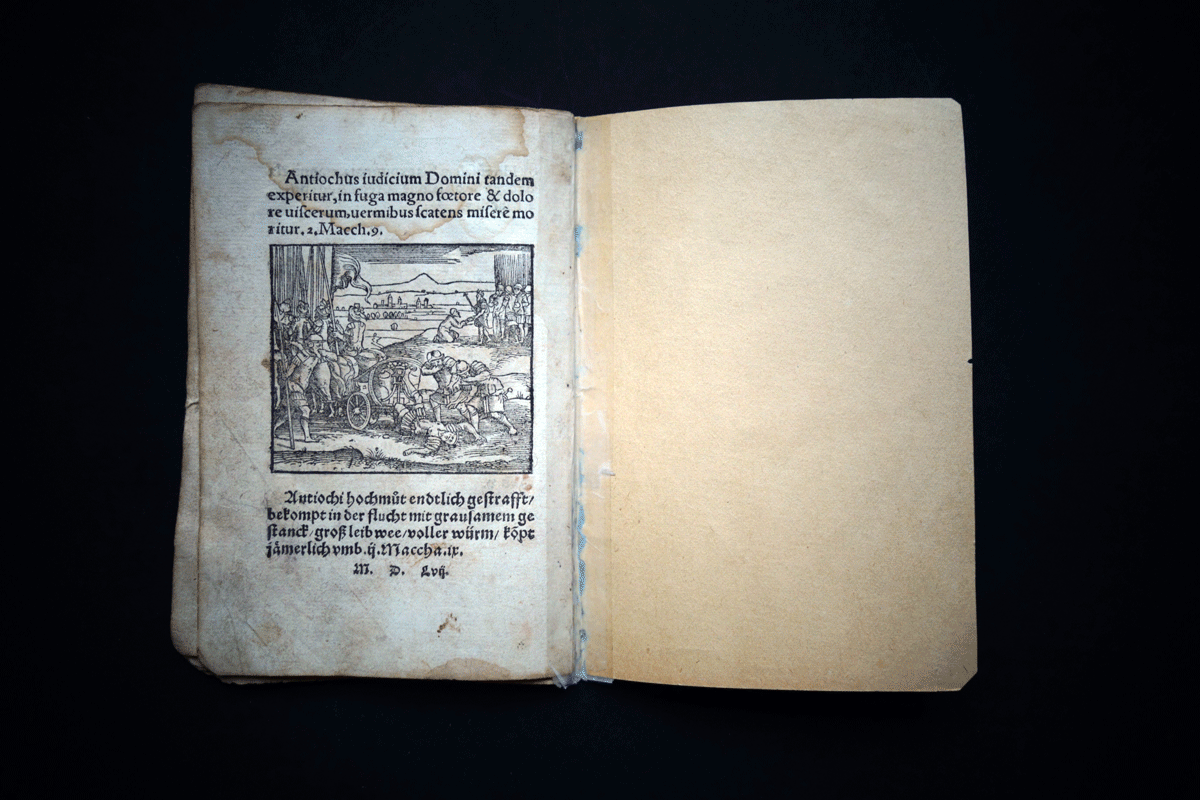 Antiochus iudicium Domini tandem
experitur, in fuga magno fœtore & dolo
re uiſcerum, uermibus ſcatens miſerè mo
ritur. 2. Macch. 9.
Antiochi hochmůt endtlich geſtrafft/
bekompt in der flucht mit grauſamem ge
ſtanck/groß leib wee/voller würm/ kopt
jämerlich vmb. ij. Maccha. ix.
M. D. Lvij.